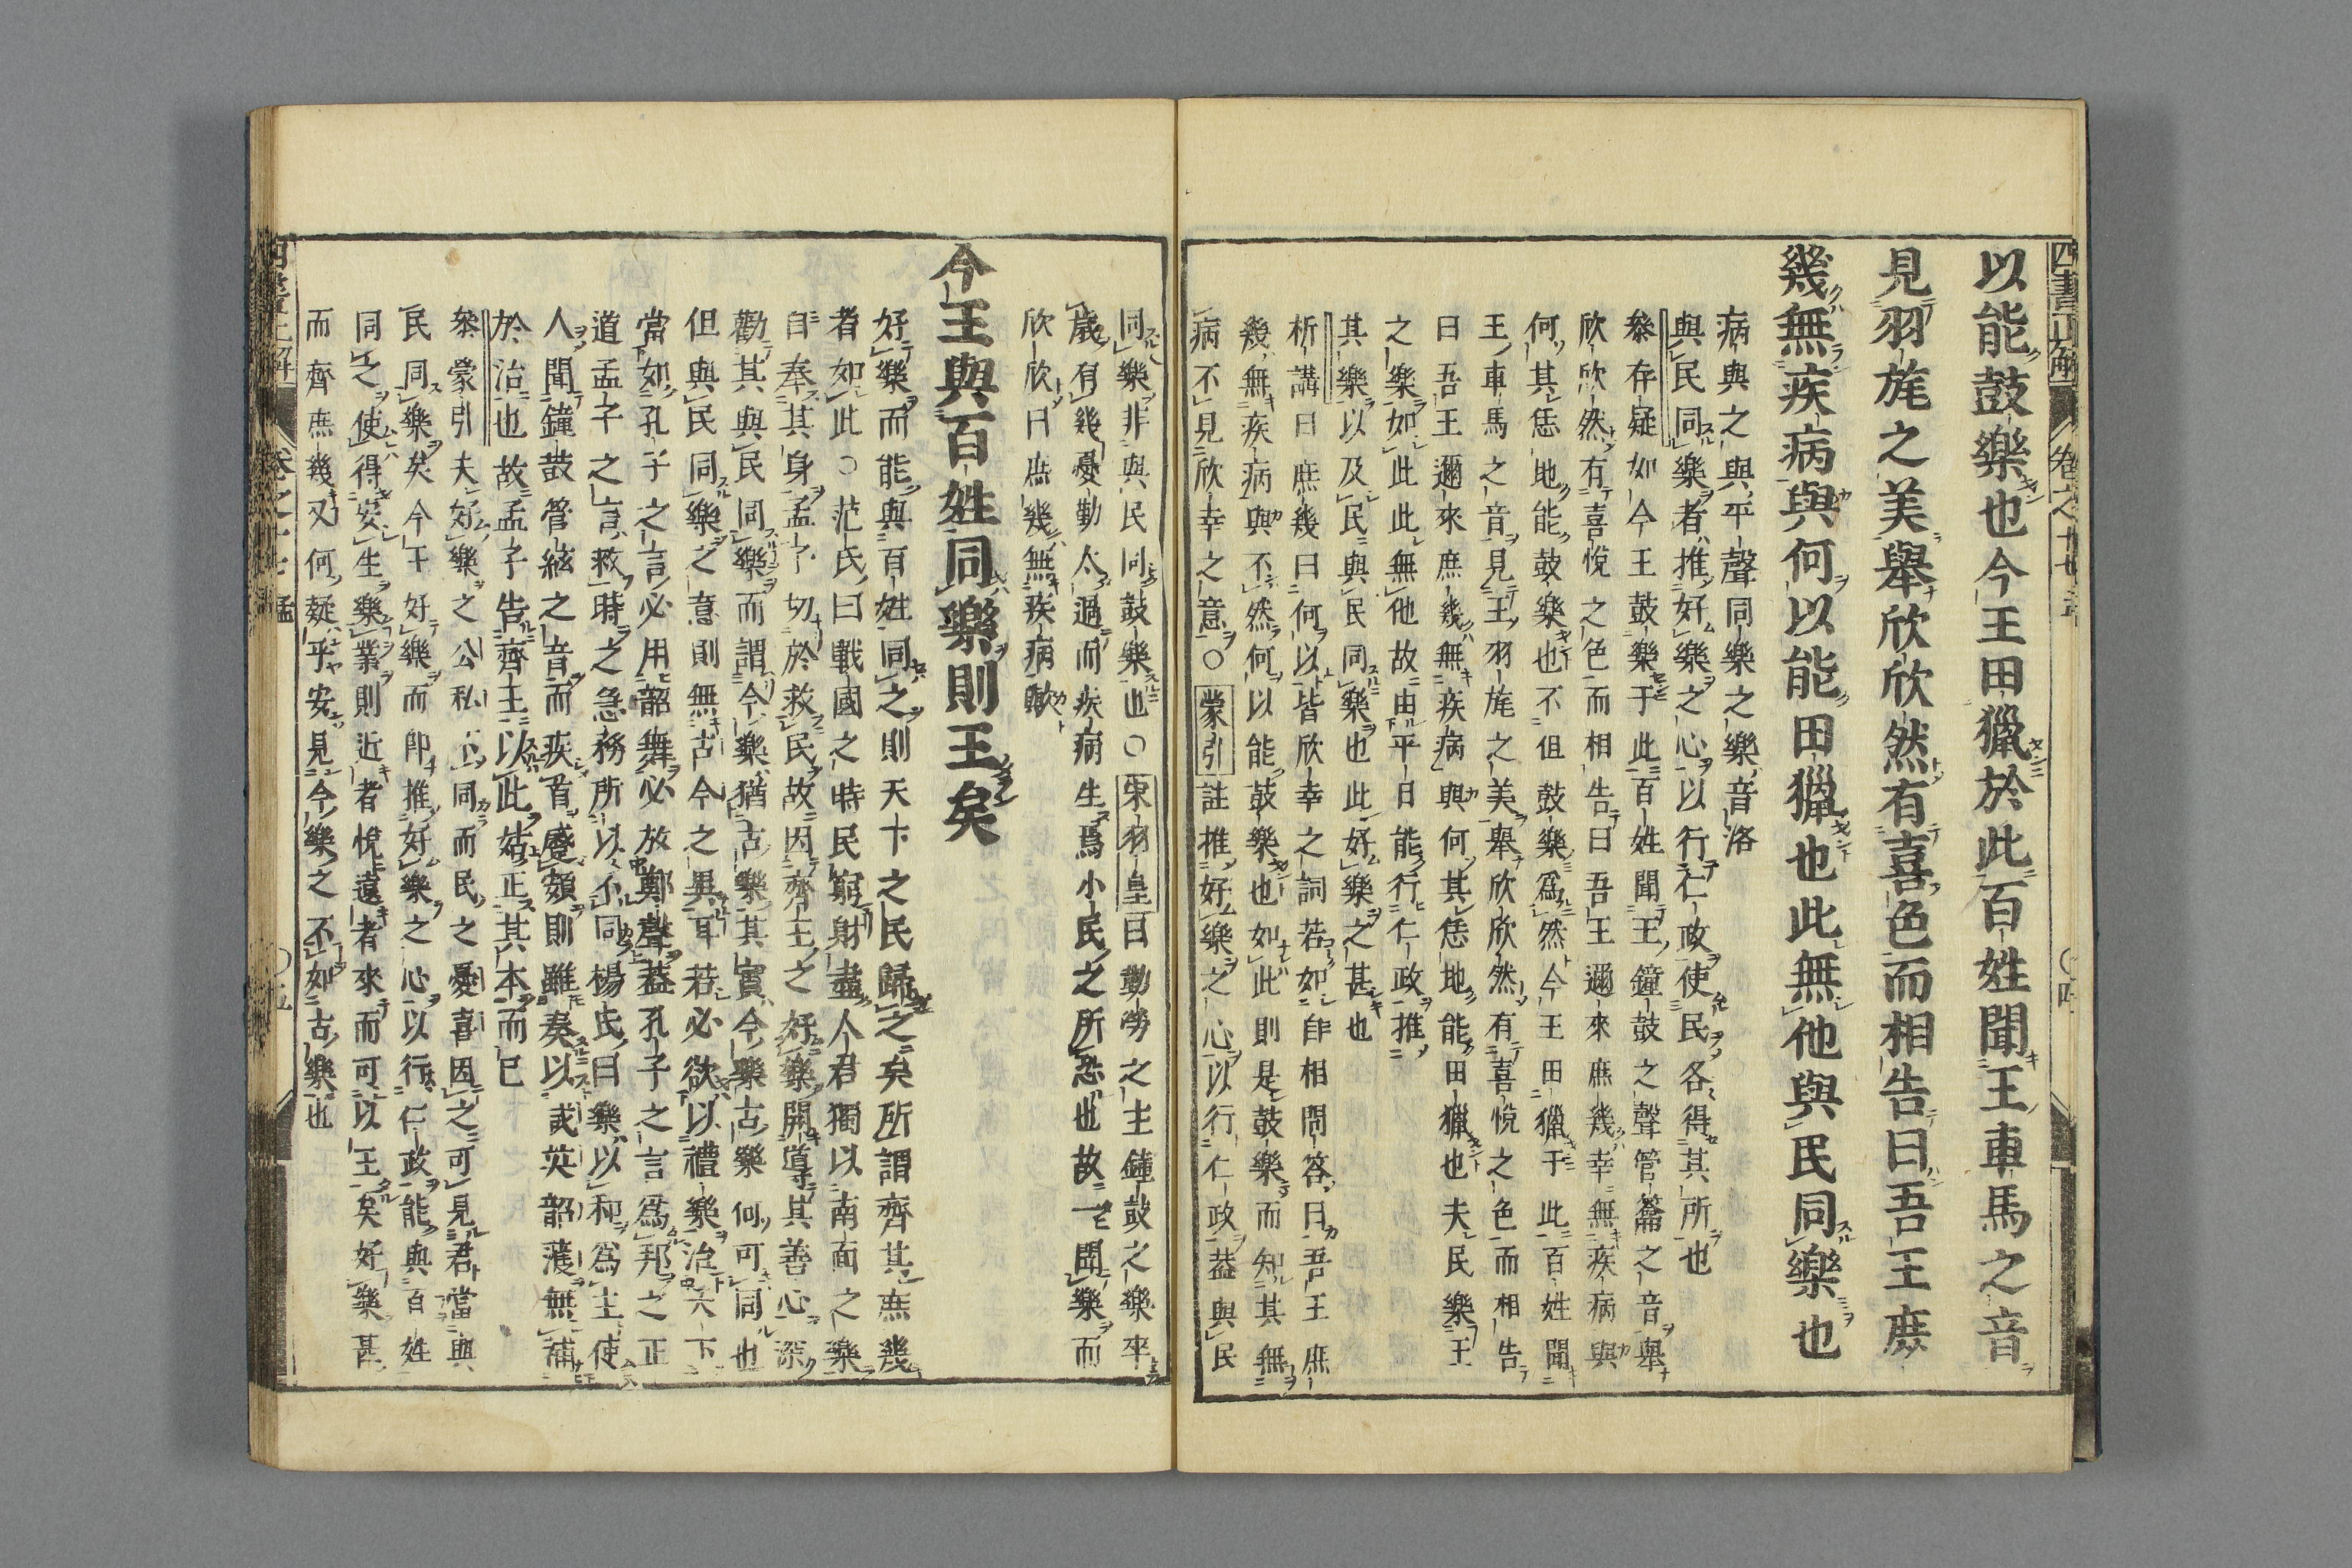 以能鼓樂也今王田獵於此百姓聞王車馬之音
見羽旄之美舉欣欣然有喜色而相告曰吾王庶
幾無疾病與何以能田獵也此無他與民同樂也
病與之與平聲同樂之樂音洛
與民同樂者推好樂之心以行仁政使民各得其所也
叅存疑如今王鼓樂于此百姓聞王鐘鼓之聲管籥之音舉
欣欣然有喜悅之色而相告曰吾王邇來庶幾幸無疾病與
何其恁地能鼓樂也不但鼓樂爲然今王田獵于此百姓聞
王車馬之音見王羽旄之美舉欣欣然有喜悅之色而相告
曰吾王邇來庶幾無疾病與何其恁地能田獵也夫民樂王
之樂如此此無他故由平日能行仁政推
其樂以及民與民同樂也此好樂之甚也
析講曰庶幾曰何以皆欣幸之詞若如自相問答曰吾王庶
幾無疾病與不然何以能鼓樂也如此則是鼓樂而知其無
病不見欣幸之意○蒙引註推好樂之心以行仁政葢與民
同樂非與民同鼓樂也○東羽皇曰勤勞之主鐘鼓之樂卒
歲有幾憂勤太過而疾病生焉小民之所恐也故一聞樂而
欣欣曰庶幾無疾病歟
今王與百姓同樂則王矣
好樂而能與百姓同之則天下之民歸之矣所謂齊其庶幾
者如此○范氏曰戰國之時民窮財盡人君獨以南面之樂
自奉其身孟子切於救民故因齊王之好樂開導其善心深
勸其與民同樂而謂今樂猶古樂其實今樂古樂何可同也
但與民同樂之意則無古今之異耳若必欲以禮樂治天下
當如孔子之言必用韶舞必放鄭聲葢孔子之言爲邦之正
道孟子之言救時之急務所以不同楊氏曰樂以和爲主使
人聞鐘鼓管絃之音而疾首蹙頞則雖奏以咸英韶濩無補
於治也故孟子告齊王以此姑正其本而已
叅蒙引夫好樂之公私上同而民之憂喜因之可見君當與
民同樂矣今王好樂而卽推好樂之心以行仁政能與百姓
同之使得安生樂業則近者悅遠者來而可以王矣好樂甚
而齊庶幾又何疑乎安見今樂之不如古樂也